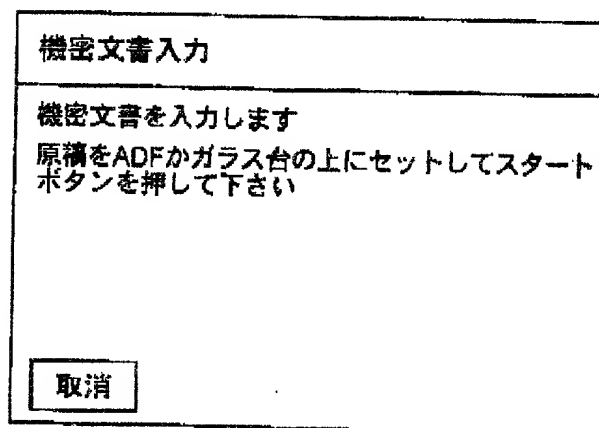 機密文書入力
機密文書を入力します
原稿をADFかガラス台の上にセットしてスタート
ボタンを押して下さい
取消